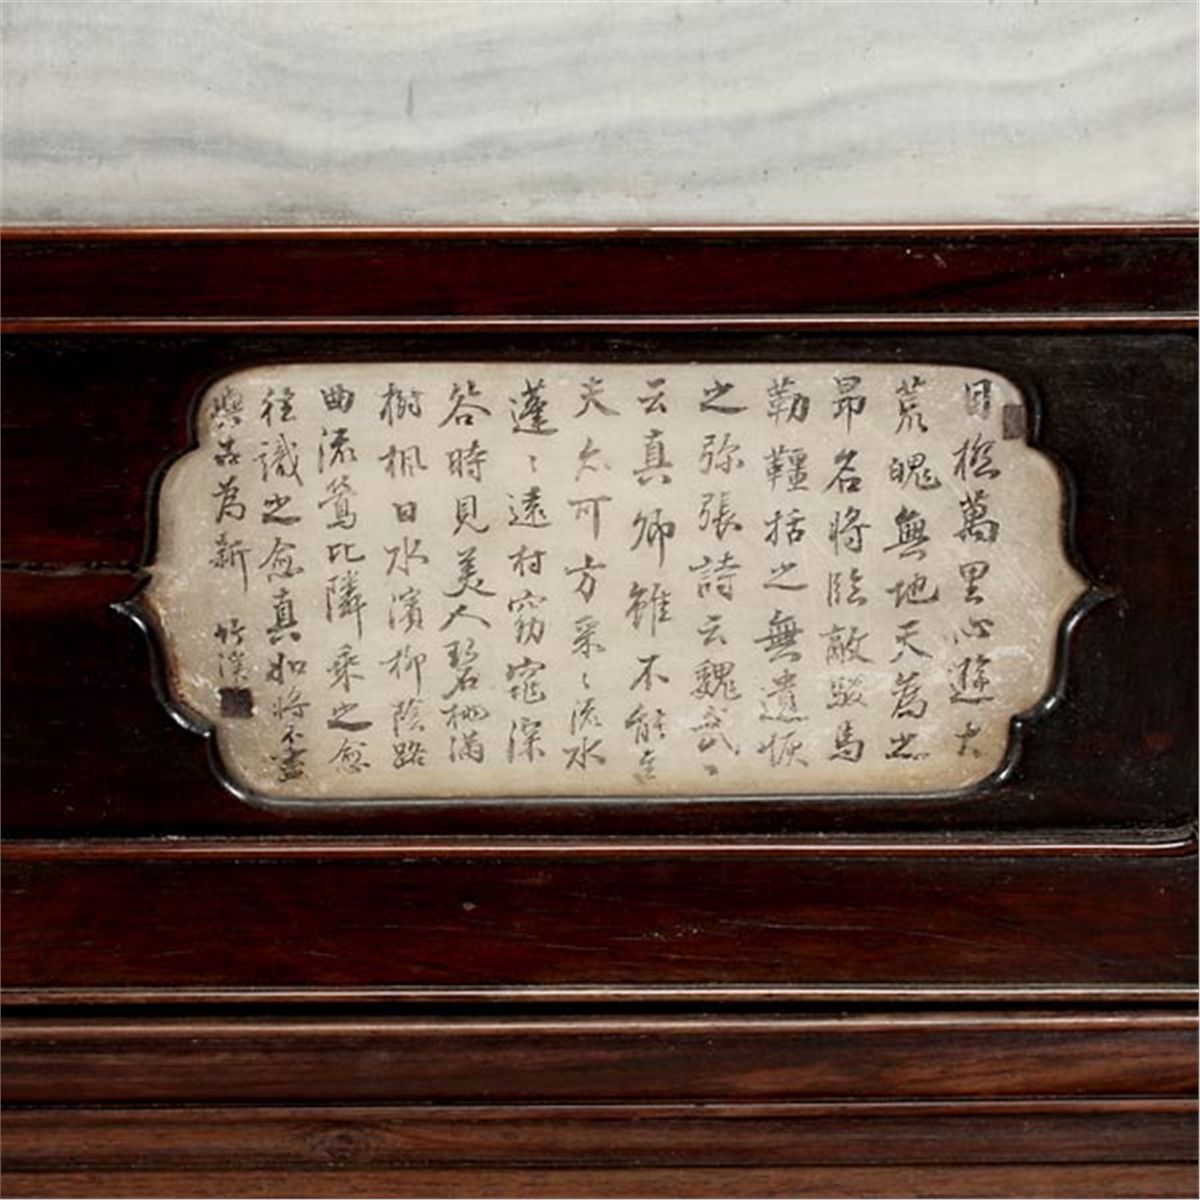 目極萬里心遊大
荒魄無地天為之
昂名將臨敵駿馬
勒韁括之無遺恢
之弥張詩云魏武
云真卿雖不能至
夫亦可方采〻流水
蓬〻遠村窈窕深
谷時見美人碧桃滿
樹楓日水濱柳陰路
曲流鶯比隣乘之愈
往識之愈真如將不盡
與古為新 竹溪